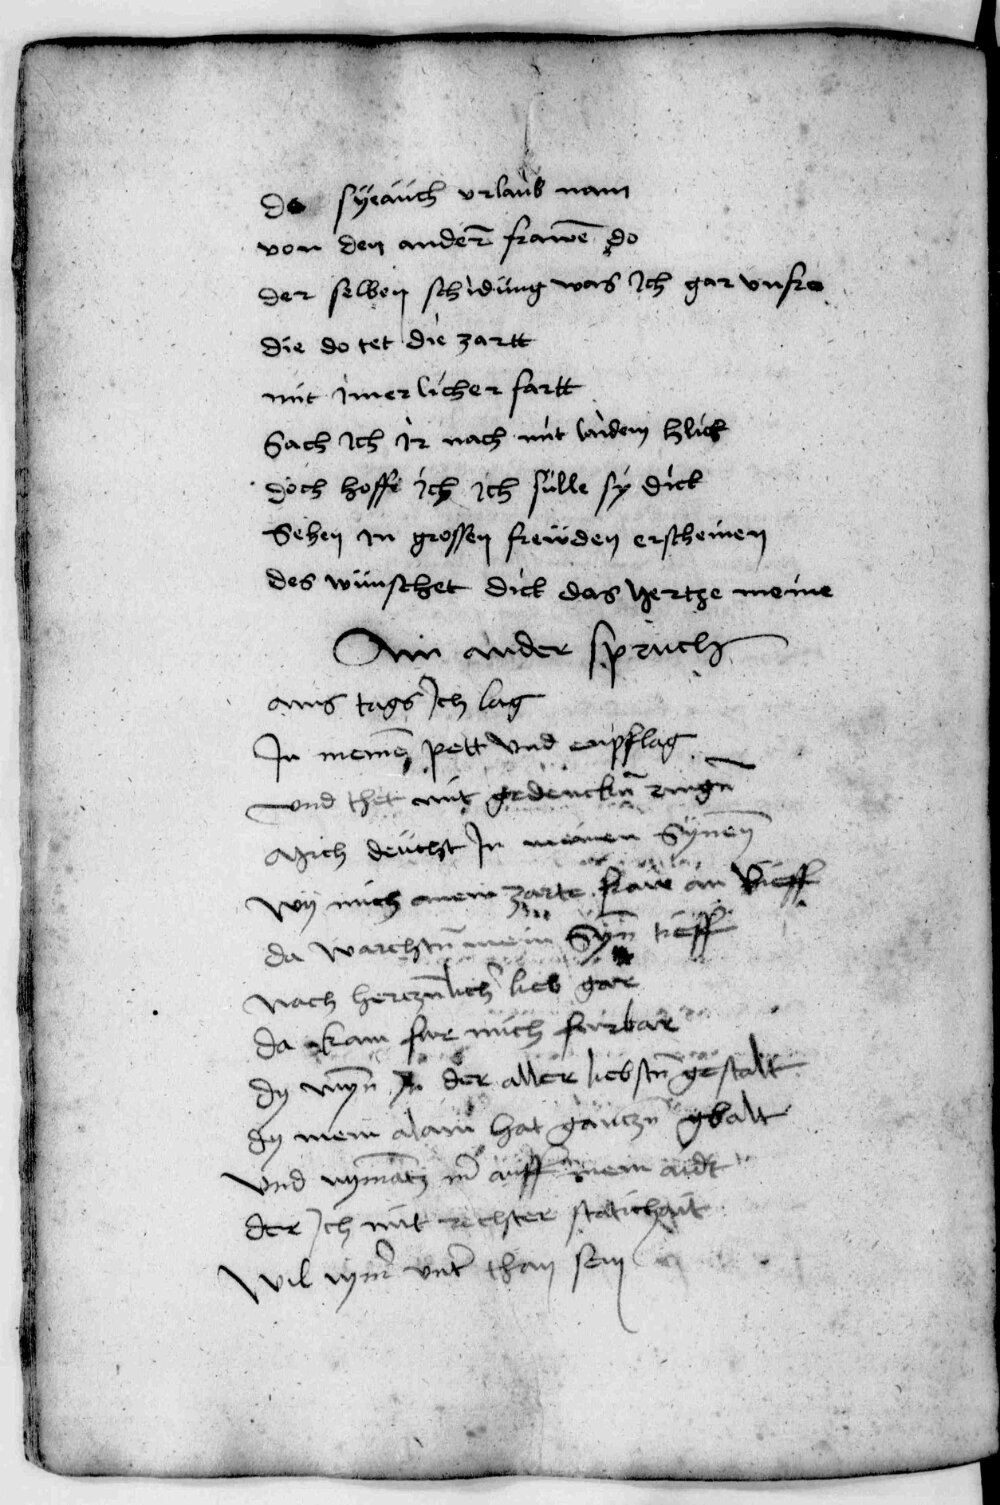 do syeauch vrlaub nam
von den anderñ frawē do
der selben schidung was Ich gar vnfro
die do tet die zartt
mit Inerlicher fartt
Sach Ich Ir nach mit laidem blick
doch hoff Ich Ich sülle sy dick
Sehen In grossen freüden erscheinen
des wünschet dick das hertze meine
Ain ander spruch
ains tags Ich lag
In meinē pett vnd enpflag
vnd thet mit gedenckñ ringñ
Mich deücht In meinen Synen
wy mich mein zarte fraw an lieff
da mein Syn tieff
nach hertznlich lieb gar
da kam fur mich furbar
dy mynñ In der aller liebstñ gestalt
dy mein alain hat gantzñ gbalt
vnd nymātz mer auff mein aidt
der Ich mit rechter stätichait
wil nymer vnter than sein